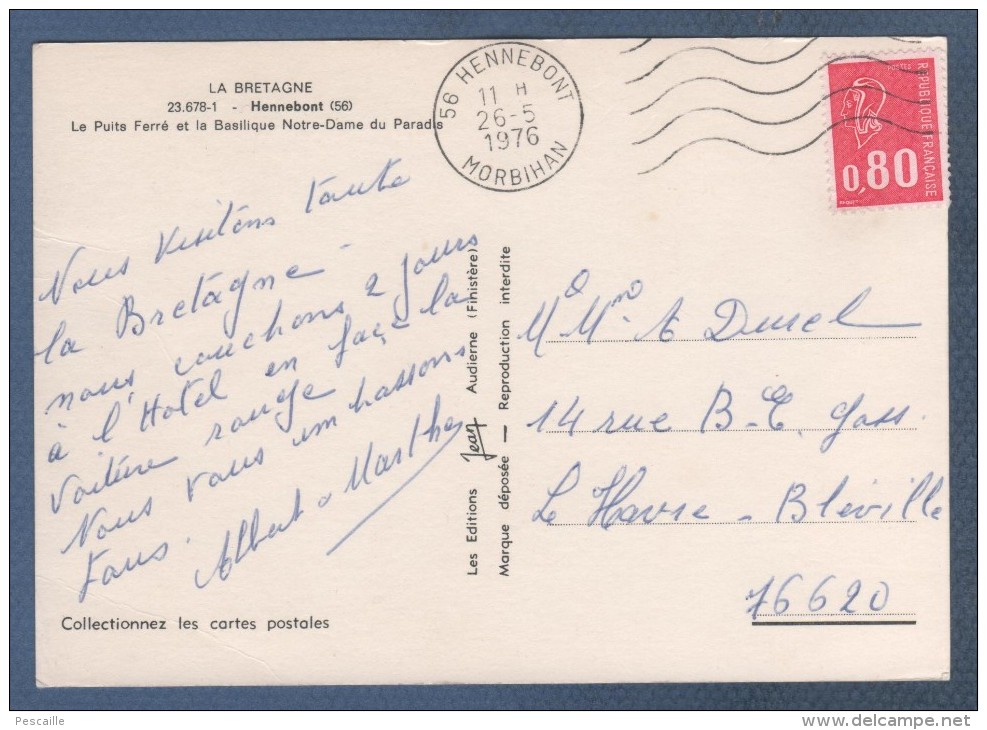 LA BRETAGNE
23.678-1 - Hennebont (56)
Le Puits Ferré et la Basilique Notre-Dame du Paradis
56 HENNEBONT
11 H
26-5
1976
MORBIHAN
POSTES
REPUBLIQUE FRANÇAISE
0,80
Nous visitons toute
la Bretagne -
nous couchons 2 jours
à l'Hotel en face la
voiture rouge
Nous vous embrassons
tous.
Albert & Marthe
Collectionnez les cartes postales
Les Editions Jean Audierne (Finistère)
Marque déposée — Reproduction interdite
M Mme A Durel
14 rue B. Gass.
Le Havre - Bléville
76620
Pescaille
delcampe.net